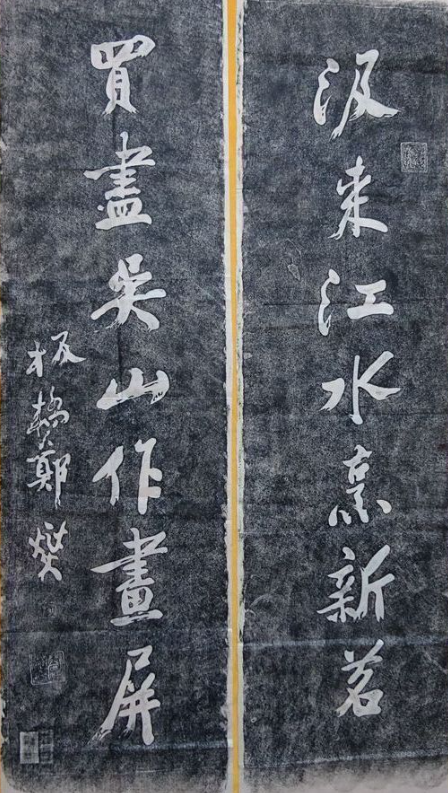 汲来江水烹新茗
買盡吴山作畫屏
板橋鄭燮